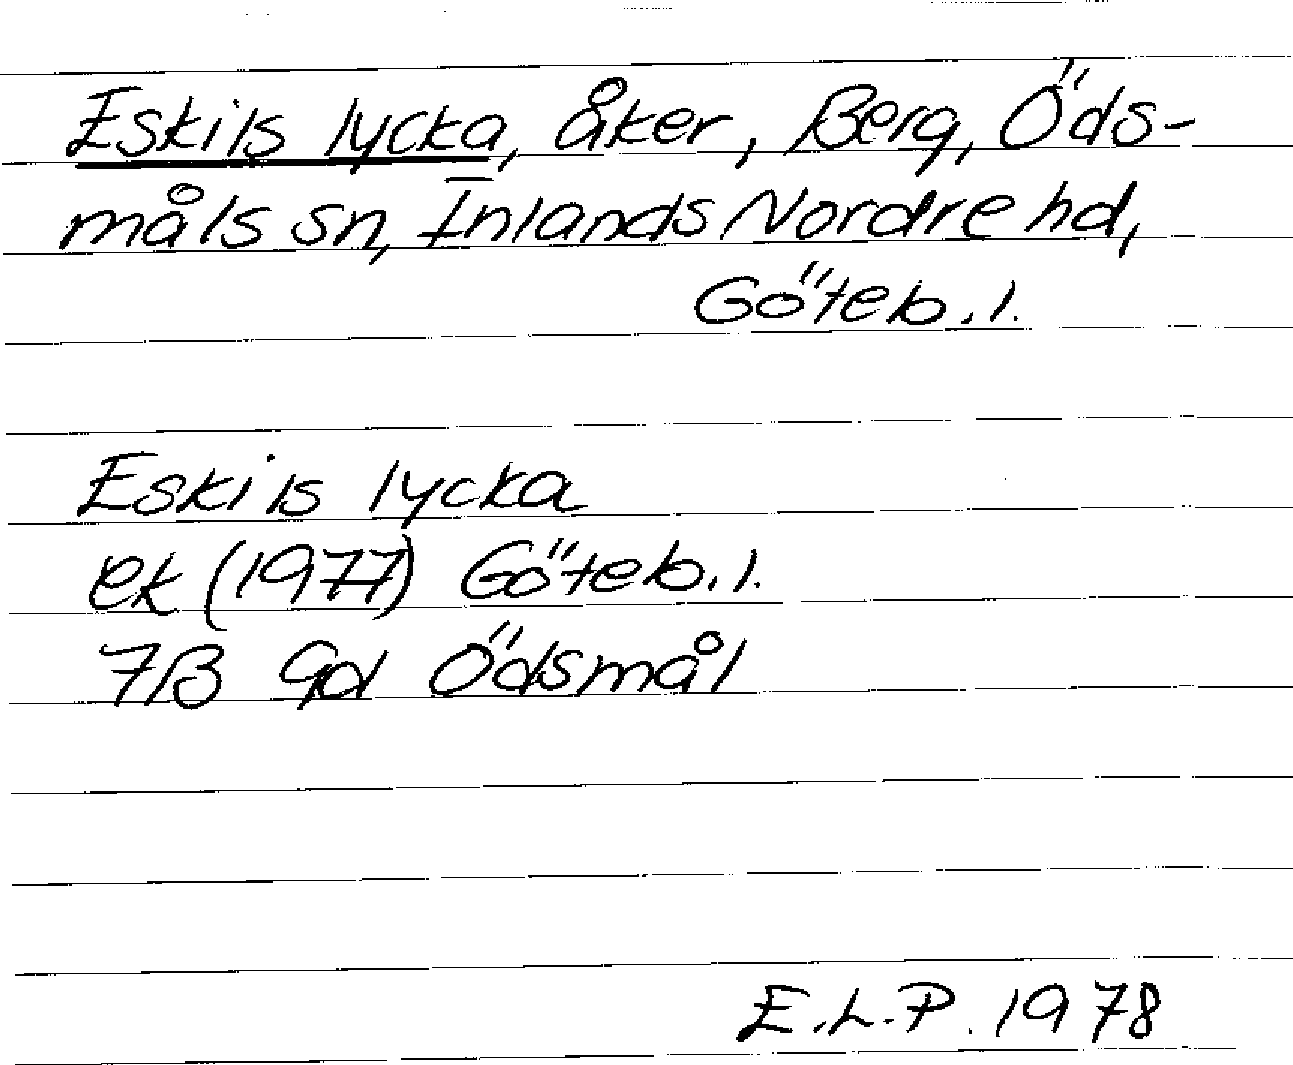 Eskils lycka, åker, Berg, Öds-
måls sn, Inlands Nordre hd,
Göteb. l.
Eskils lycka
ek (1977) Göteb. l.
7B 9d Ödsmål
E.L.P. 1978